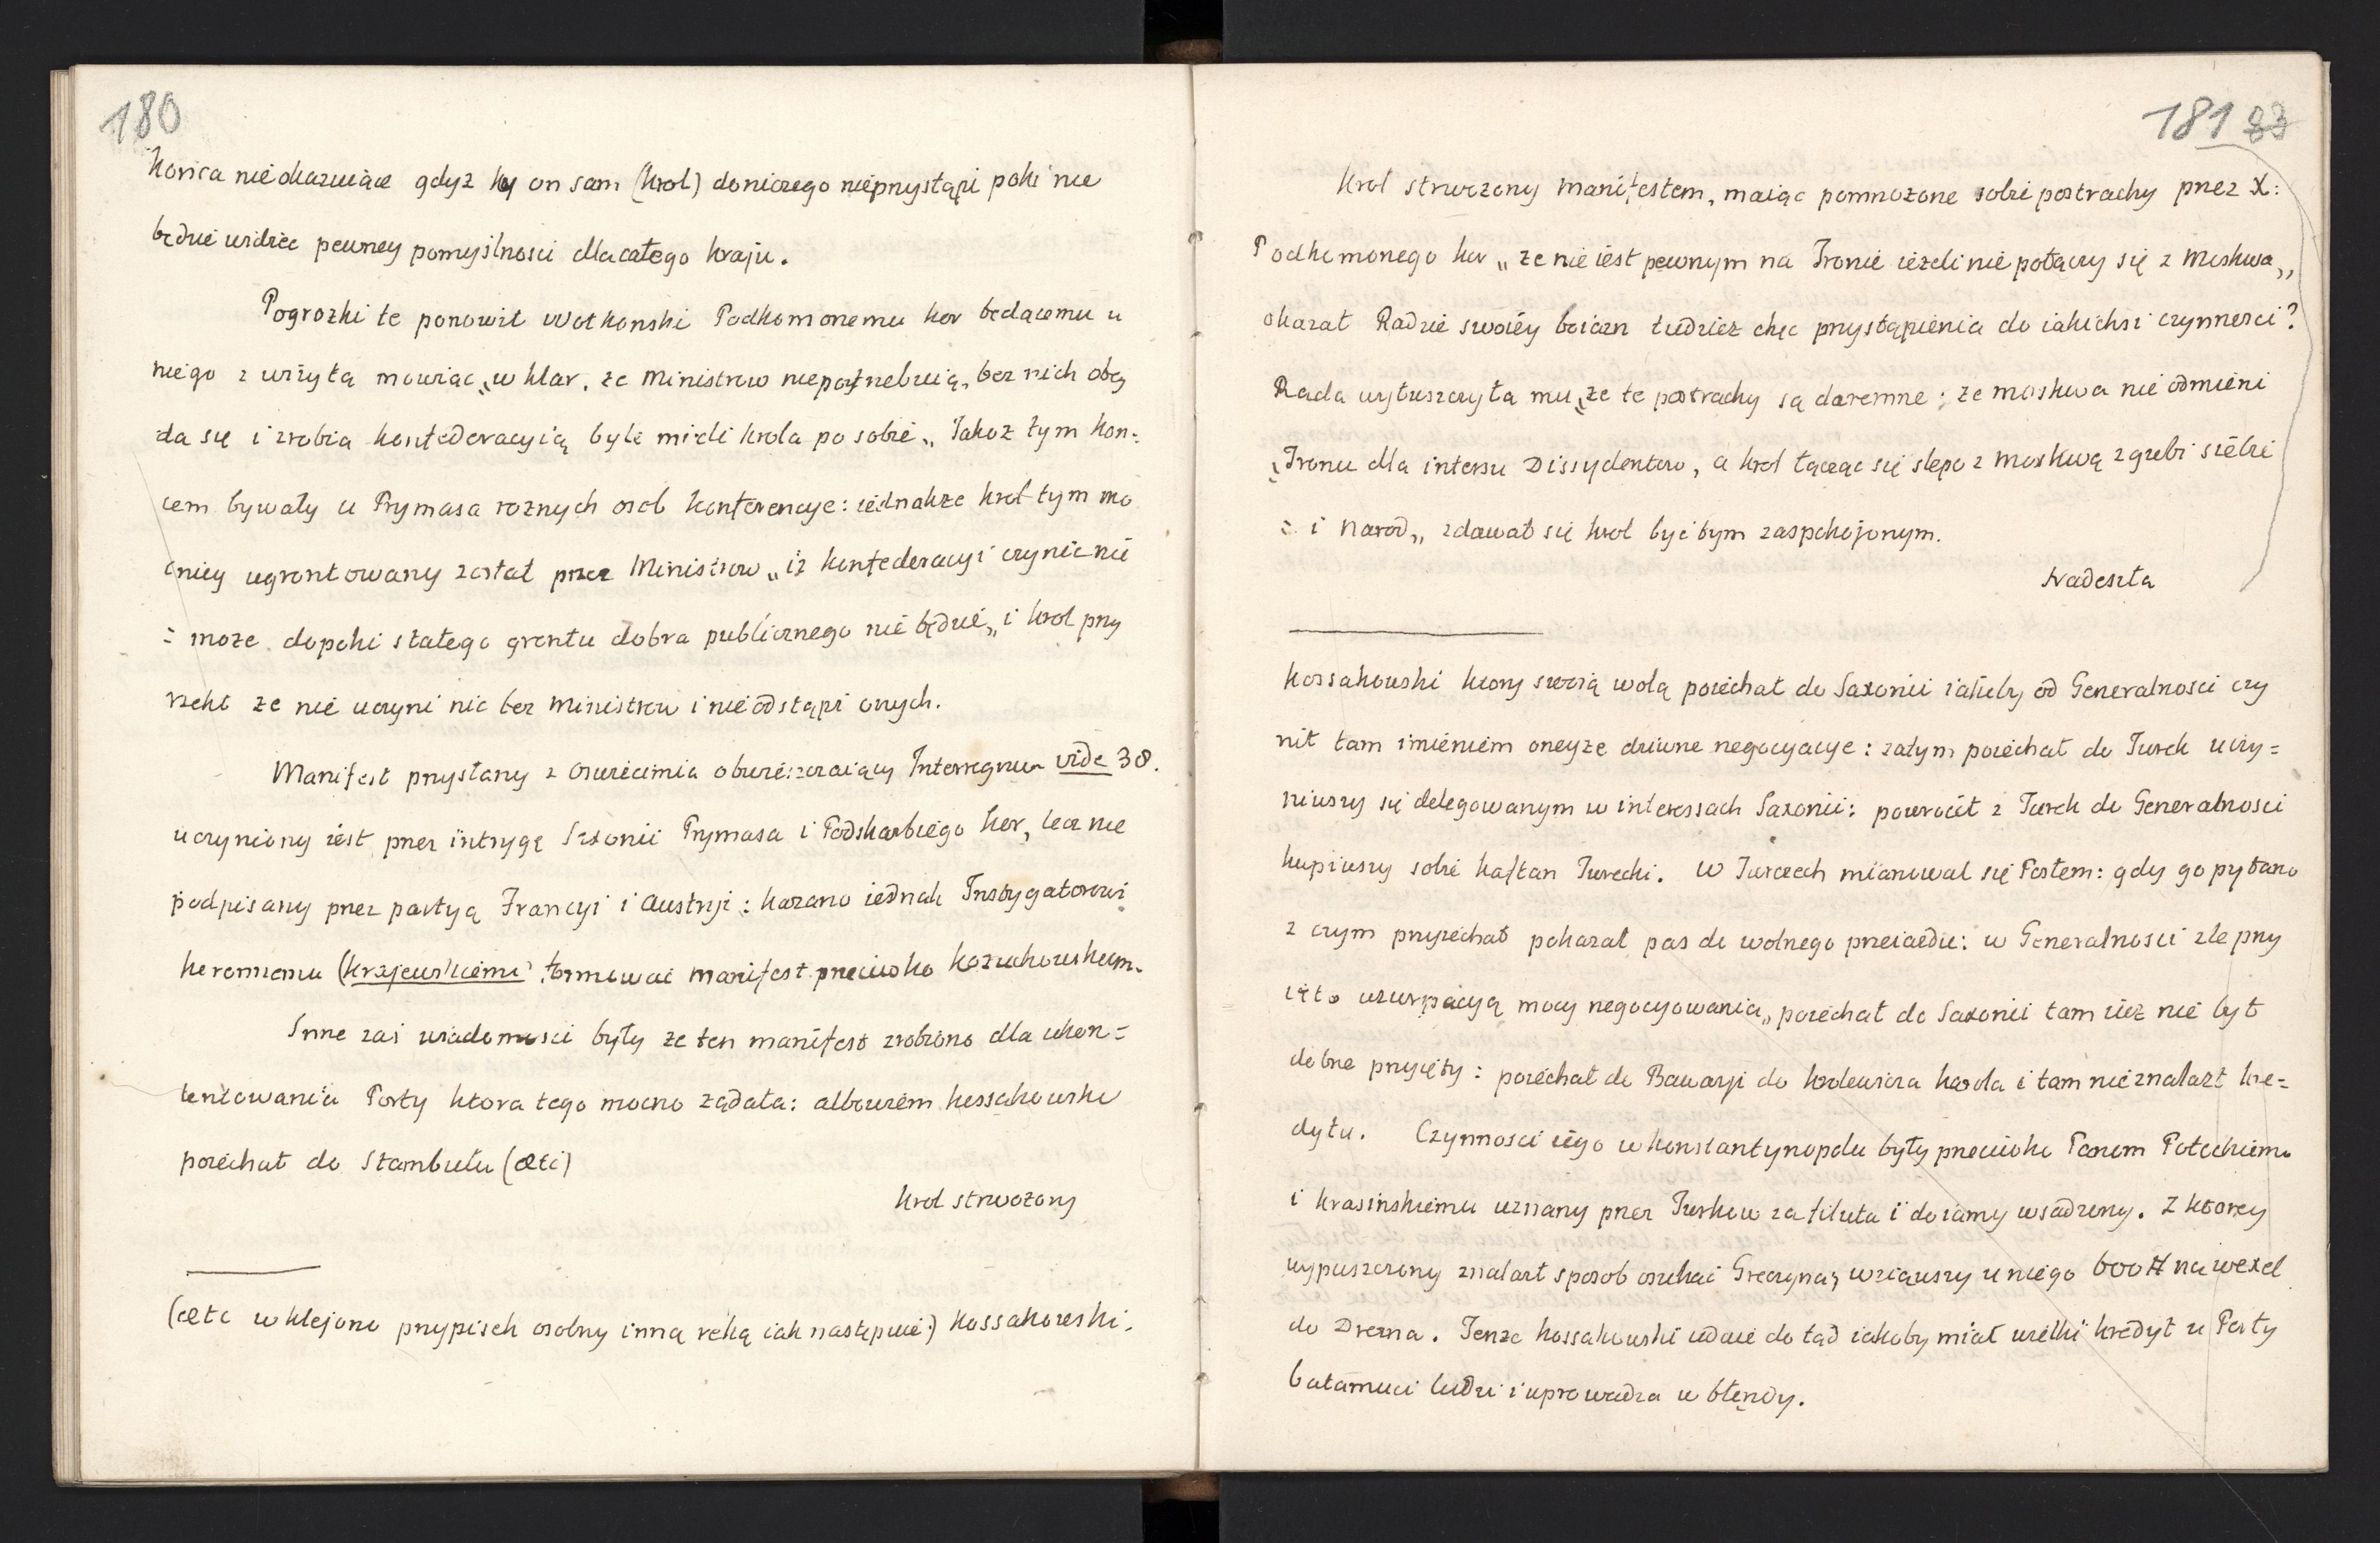 180
konca nieokazuiące gdyz ky on sam (krol) doniczego nieprzystąpi poki nie
będzie widziec pewney pomyslnosci dla całego kraju.
Pogrozki te ponowił Wołkonski Podkomoremu kor będącemu u
niego z wizytą mowiąc „w klar, ze Ministrow niepotrzebuią, bez nich obey
da się i zrobią konfederacyią byle mieli krola po sobie„ Jakoz tym kon=
cem bywały u Prymasa roznych osob konferencye: iednakze krol tym mo
cniey ugrontowany został przez Ministrow „iz konfederacyi czynic nie
= moze dopoki stałego grontu dobra publicznego nie będzie„ i krol przy
rzekł ze nie uczyni nic bez Ministrow i nieodstąpi onych.
Manifest przysłany z Oswiecimia obwieszczaiący Interregnum vide 38.
uczyniony iest przez intrygę Saxonii Prymasa i Podskarbiego kor, lecz nie
podpisany przez partyą Francyi i Austryi: kazano iednak Instygatorowi
koronnemu (krajewskiemu) formowac manifest przeciwko kossakowskiem.
Inne zas wiadomosci były ze ten manifest zrobiono dla ukon=
tentowania Porty ktora tego mocno ządała: albowiem kossakowski
poiechał do Stambułu (etc)
krol strwozony
(etc wklejono przypisek osobny inną ręką iak następuie:) Kossakowski.
181 83
Krol strwozony manifestem, maiąc pomnozone sobie postrachy przez X:
Podkomorzego kor „ze nie iest pewnym na Tronie iezeli nie połączy się z Moskwa„
okazał Radzie swoiey boiazn tudziez chęc przystąpienia do iakichsi czynnosci?
Rada wytłuszczyła mu „ze te postrachy są daremne; ze moskwa nie odmieni
„Tronu dla interesu Dissydentow, a krol łącząc się slepo z moskwą zgubi siebie
= i narod„ zdawał się krol być tym zaspokojonym.
Nadeszła
Kossakowski ktory swoią wolą poiechał do Saxonii iakieby od Generalnosci czy
nił tam imieniem oneyze dziwne negocyacye: zatym poiechał do Turek uczy=
niwszy się delegowanym w interessach Saxonii: powrocił z Turek do Generalnosci
kupiwszy sobie kaftan Turecki. W Turcech mianował się Posłem: gdy go pytano
z czym przyiechał pokazał pas do wolnego przeiazdu: w Generalnosci zle przy
ięto uzurpacyą mocy negocyowania„ poiechał do Saxonii tam iez nie był
dobrze przyięty: poiechał do Bawaryi do krolewica karola i tam nieznalazł kre=
dytu. Czynnosci iego w konstantynopolu były przeciwko Panom Potockiemu
i krasinskiemu uznany przez Turkow za filuta i do iamy wsadzony. Z ktorey
wypuszczony znalazł sposob oszukać Greczyna; wziąwszy u niego 600 # na wexel
do Drezna. Tenze kossakowski udaie do tąd iakoby miał wielki kredyt u Porty
bałamuci ludzi i wprowadza w błendy.